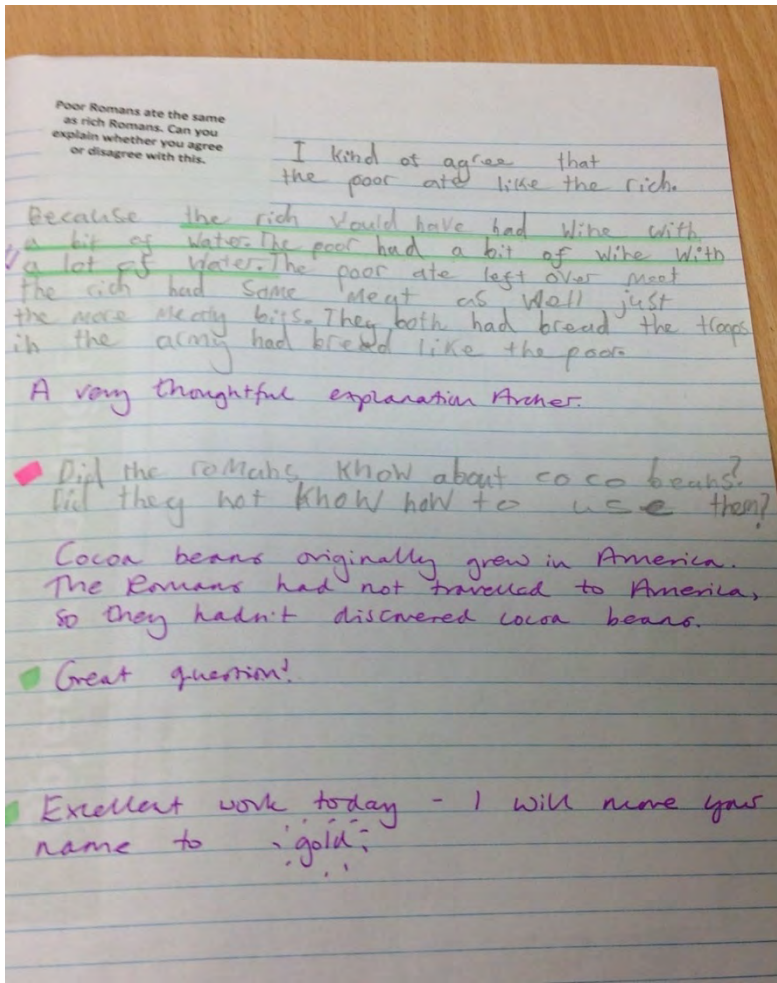 Poor Romans ate the same
as rich Romans. Can you
explain whether you agree
or disagree with this.
I kind of agree that
the poor ate like the rich.
Because the rich would have had wine with
a bit of water. The poor had a bit of wine with
a lot of water. The poor ate left over meet
the rich had some meat as well just
the more meaty bits. They both had bread the troops
in the army had bread like the poor.
A very thoughtful explanation Archer.
Did the romans know about coco beans?
Did they not know how to use them?
Cocoa beans originally grew in America.
The Romans had not travelled to America,
so they hadn't discovered cocoa beans.
Great question!
Excellent work today - I will move your
name to gold